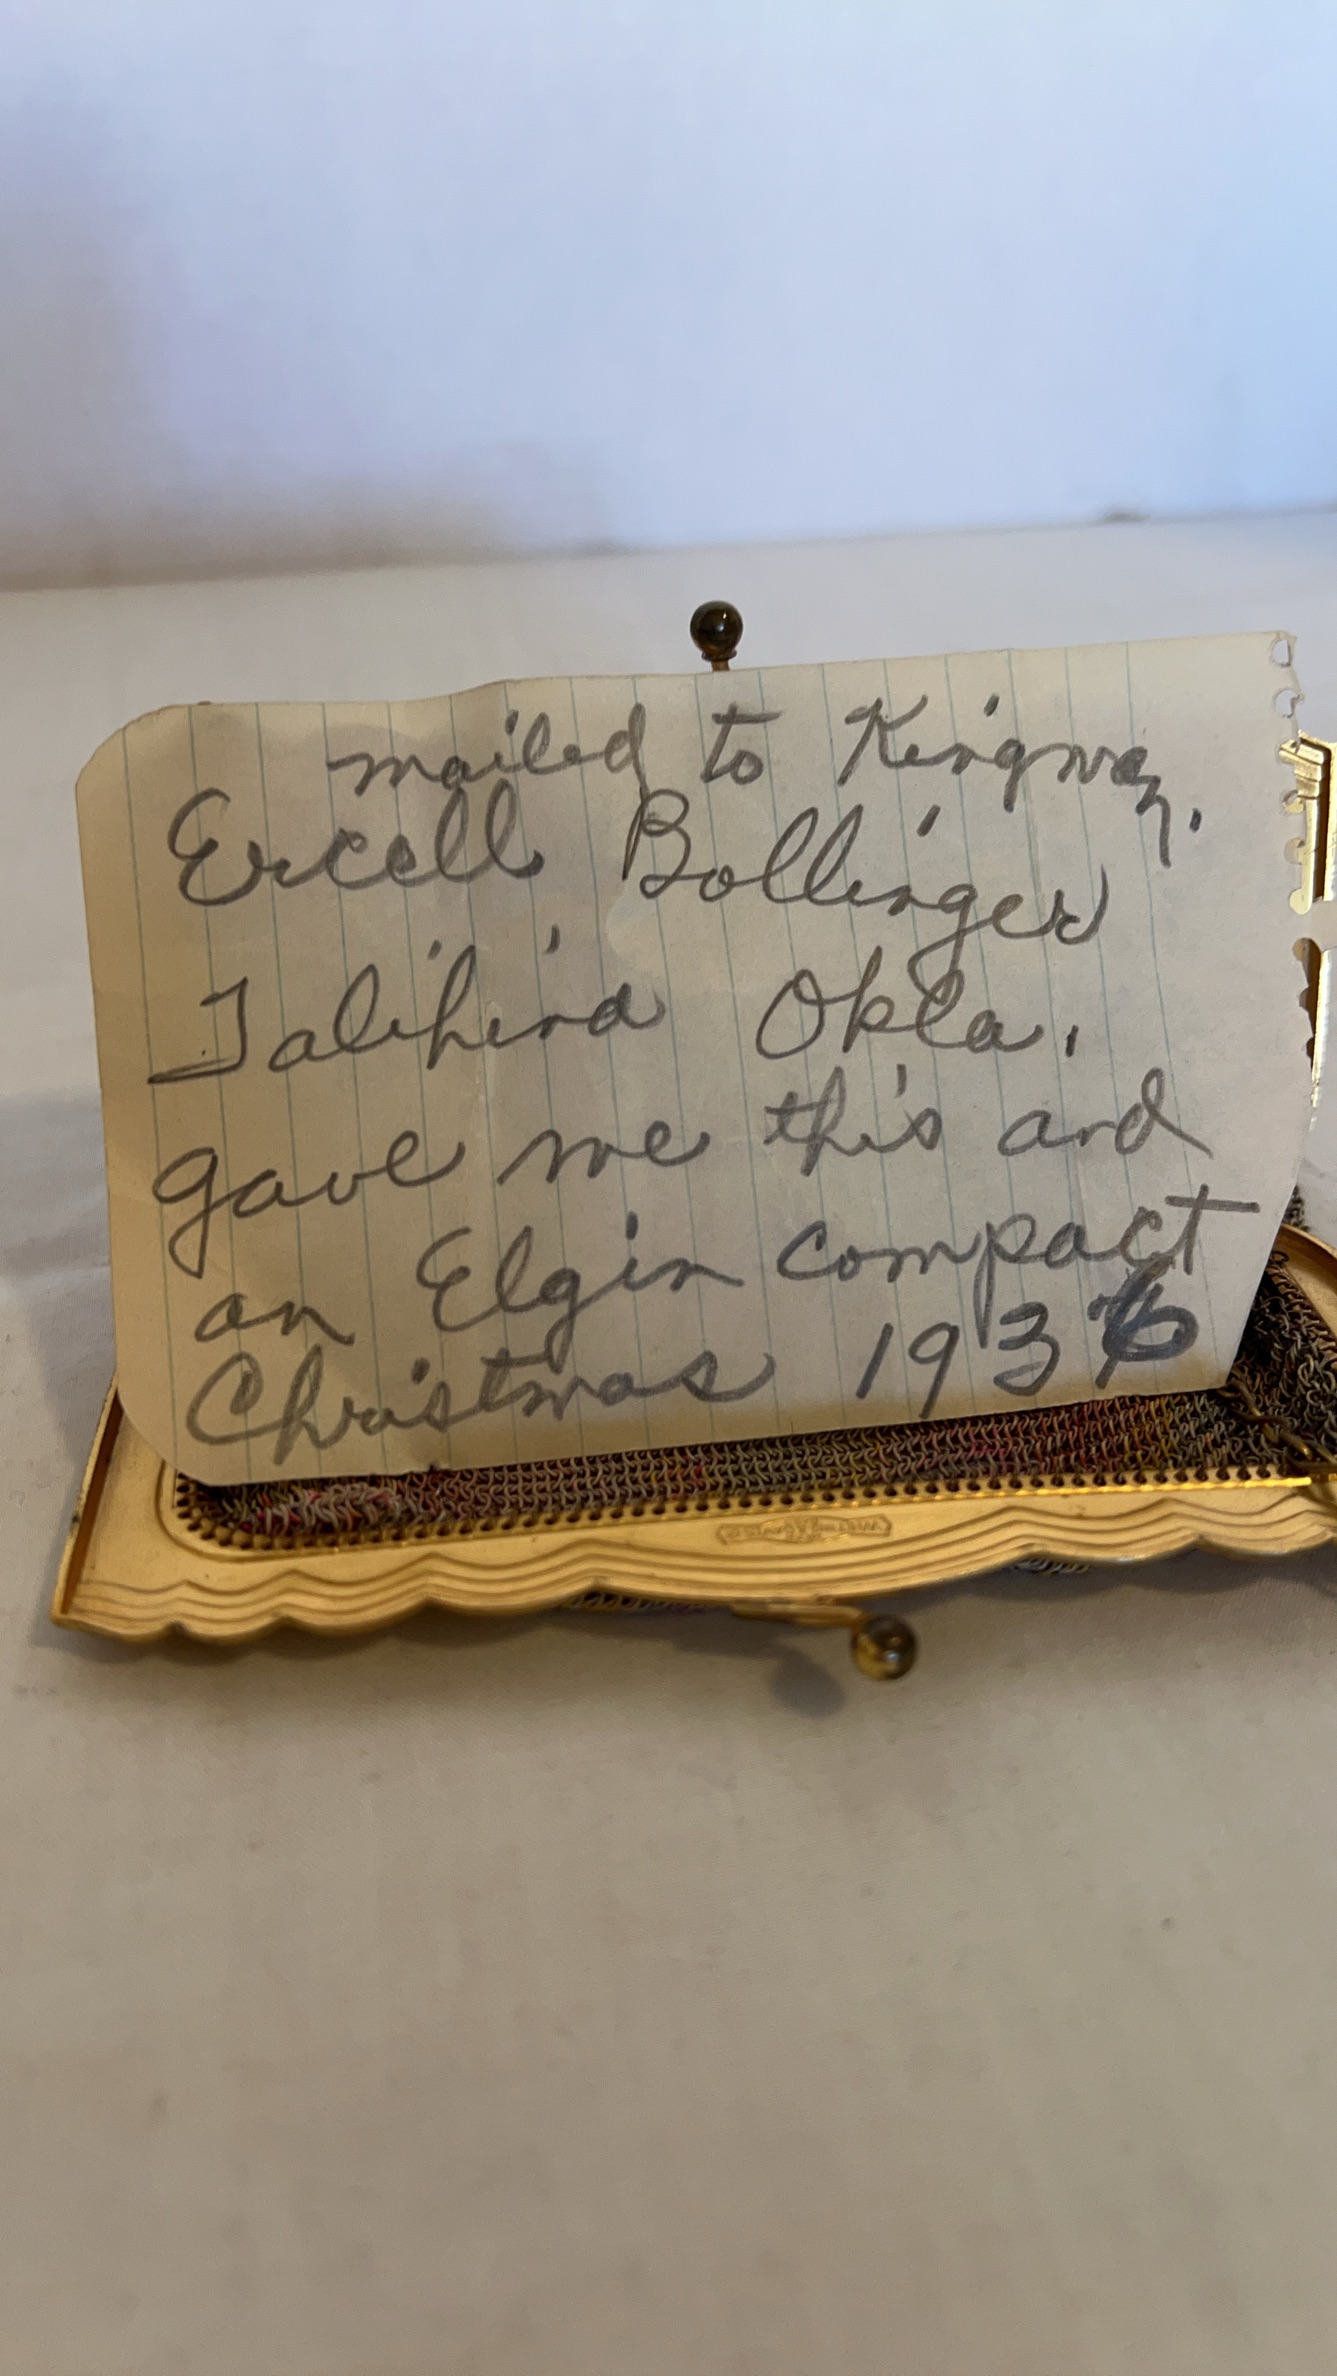 mailed to Kingman.
Ercell Bollinger
Talihina Okla.
gave me this and
an Elgin compact
Christmas 1936